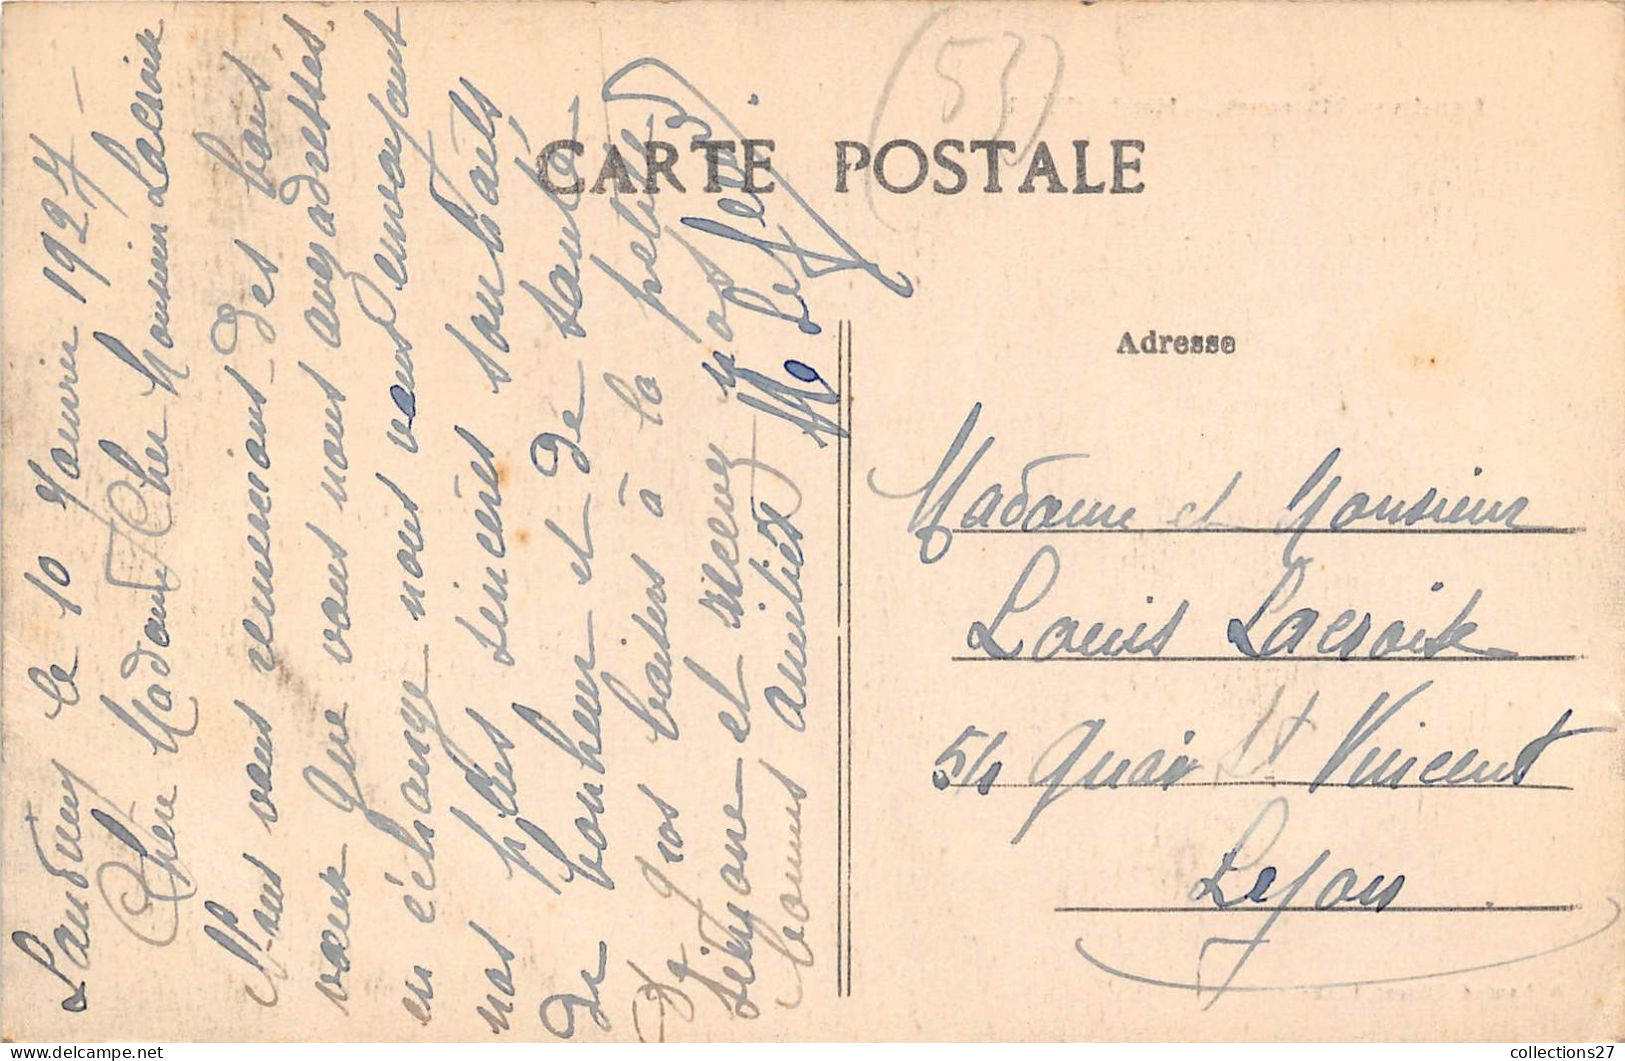 (53)
CARTE POSTALE
Adresse
Landivy le 10 Janvier 1927
Chère Madame, Cher Monsieur Lacroix
Nous vous remercions des bons
vœux que vous nous avez adressés.
en échange nous vous envoyant
nos plus sincères souhaits
de bonheur et de santé
De gros baisers à la petite
et recevez nos
bonnes amitiés
Madame et Monsieur
Louis Lacroix
54 Quai St Vincent
Lyon
collections27